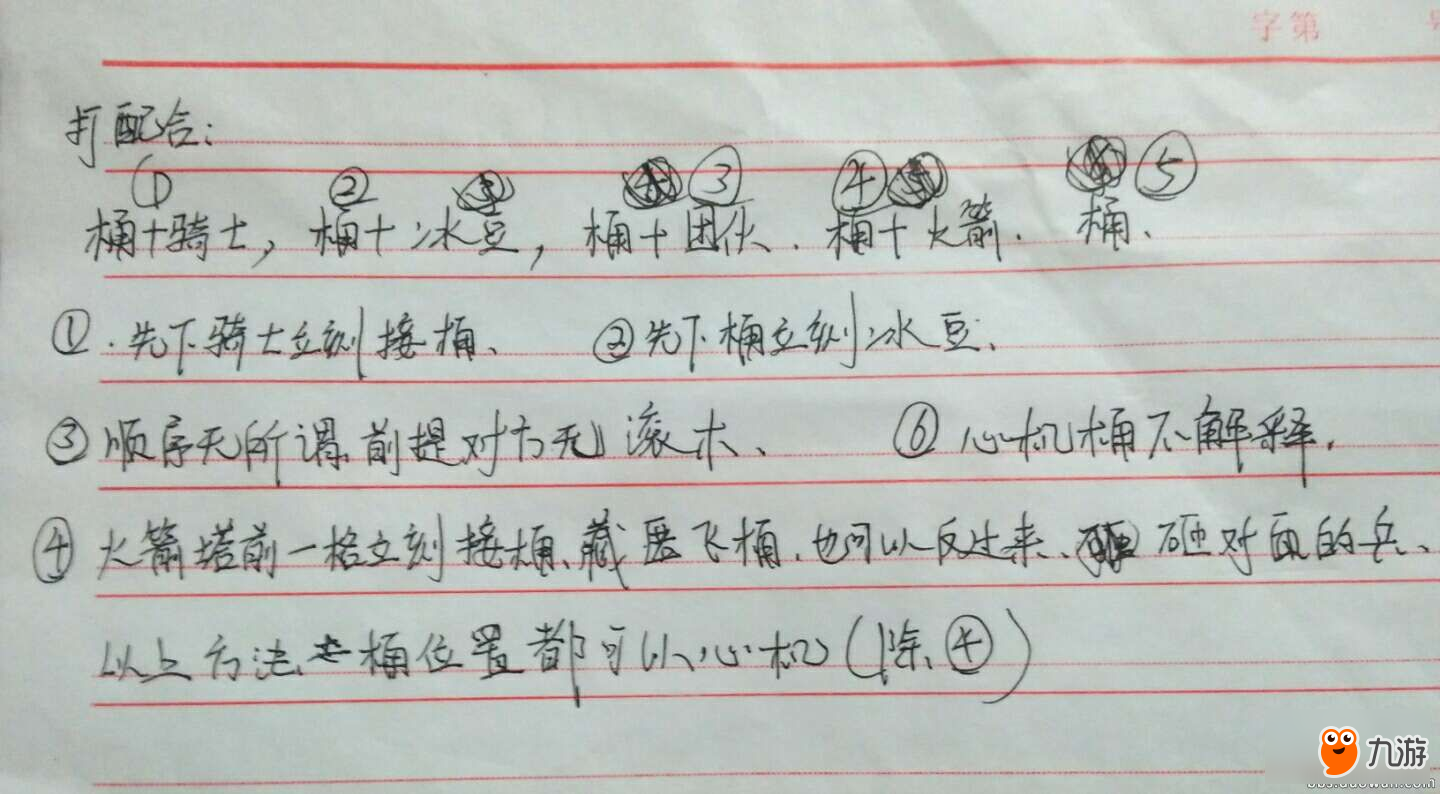 字第
打配合：
① ② ③ ④ ⑤
桶+骑士，桶+冰豆，桶+团伙．桶+火箭．桶、
①．先下骑士立刻接桶、 ②先下桶立刻冰豆．
③顺序无所谓前提对方无滚木、 ⑥心机桶不解释．
④火箭塔前一格立刻接桶、藏匿飞桶．也可以反过来、砸对面的兵、
以上方法桶位置都可以心机（除④）
九游
bbs.duowan.com